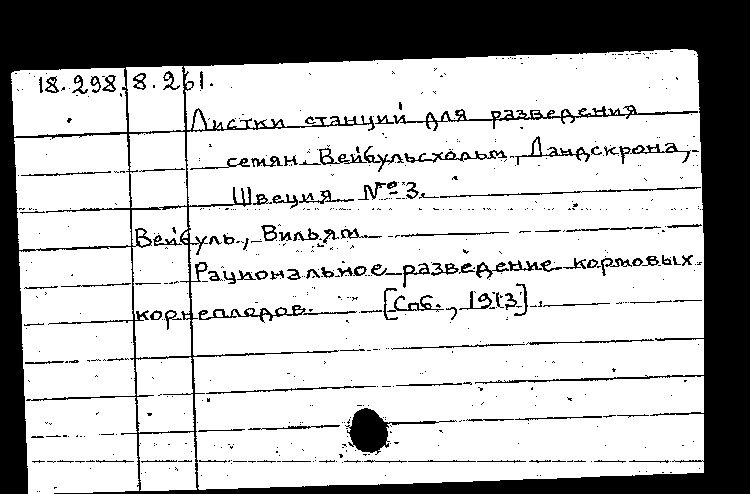 18.298.8.261.
Листки станции для разведения
семян. Вейбульсхольм, Ландскрона,
Швеция № 3.
Вейбуль, Вильям.
Рациональное разведение кормовых
корнеплодов. [Спб., 1913].